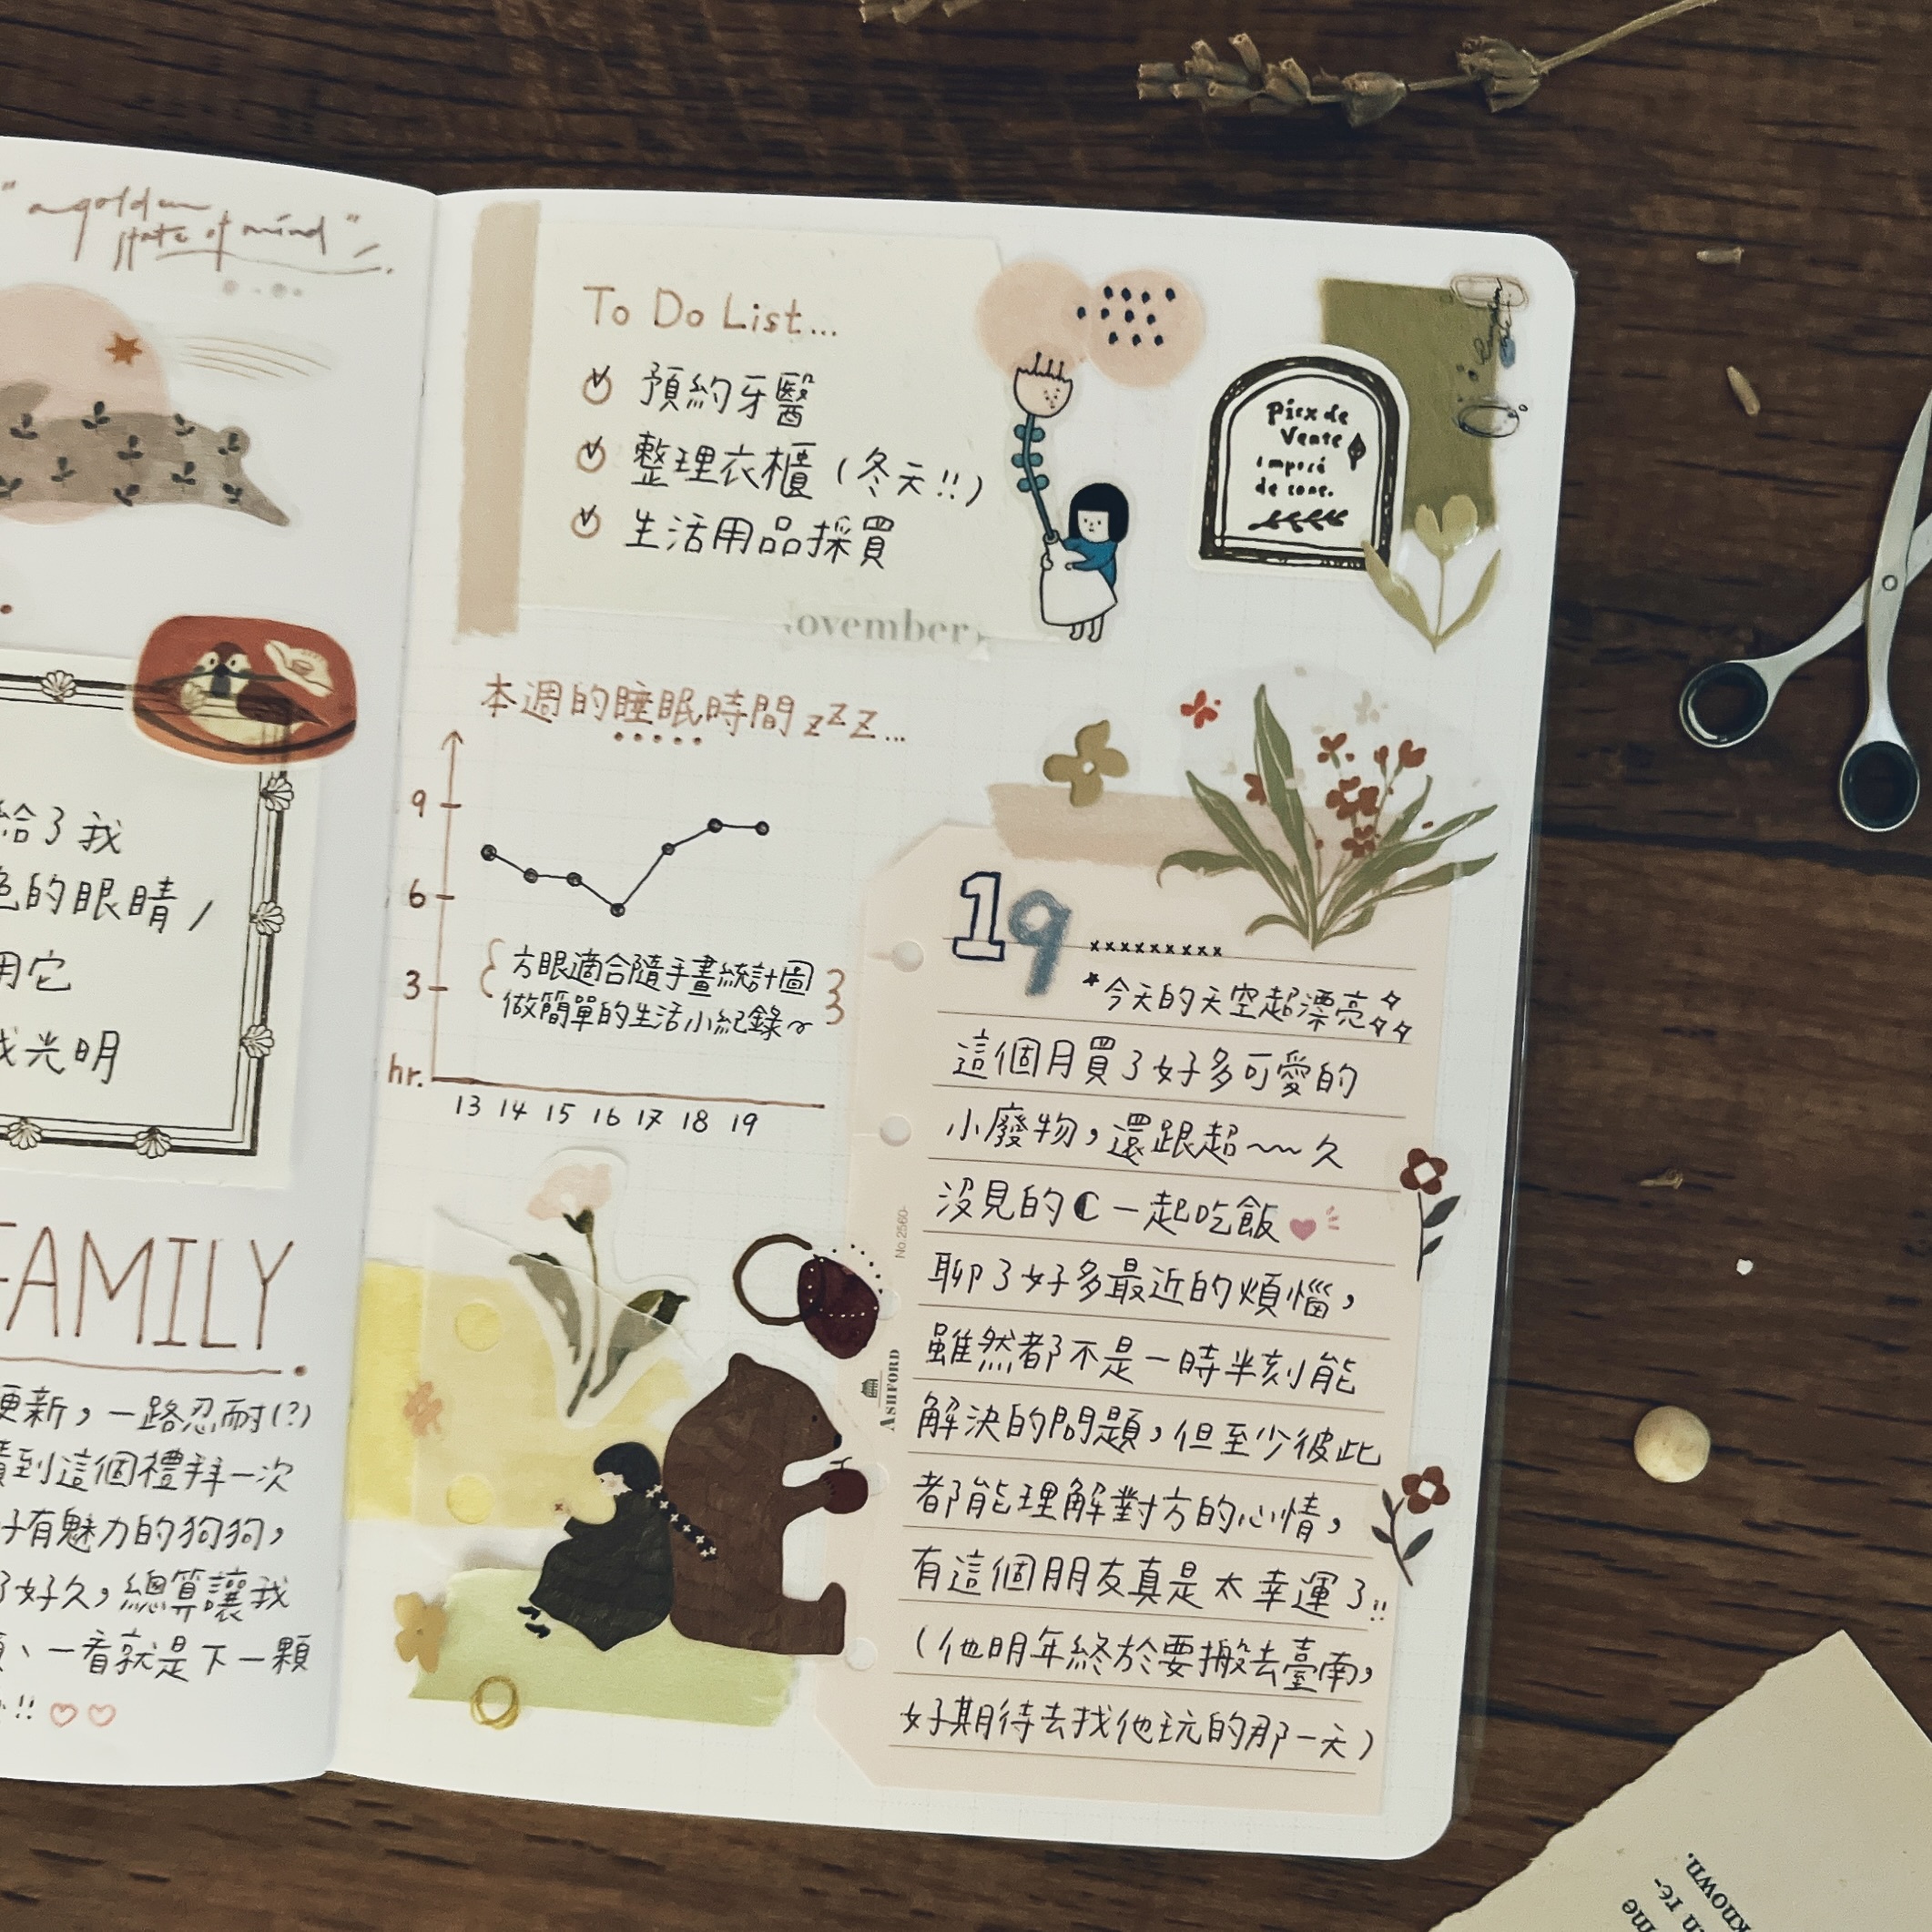 "a golden
state of mind"
給了我
色的眼睛,
用它
光明
FAMILY
更新，一路忍耐(?)
到這個禮拜一次
有魅力的狗狗，
好久，總算讓我
、一看就是下一顆
!!
To Do List...
預約牙醫
整理衣櫃（冬天!!）
生活用品採買
ovember
Vente
本週的睡眠時間 zzZ...
9
6
3
hr.
13 14 15 16 17 18 19
方眼適合隨手畫統計圖
做簡單的生活小紀錄~
19 xxxxxxxxx
*今天的天空超漂亮
這個月買了好多可愛的
小廢物，還跟超~~久
沒見的☾一起吃飯
聊了好多最近的煩惱，
雖然都不是一時半刻能
解決的問題，但至少彼此
都能理解對方的心情，
有這個朋友真是太幸運了!!
（他明年終於要搬去臺南，
好期待去找他玩的那一天）
No.2560
ASHFORD
me
n re-
known.